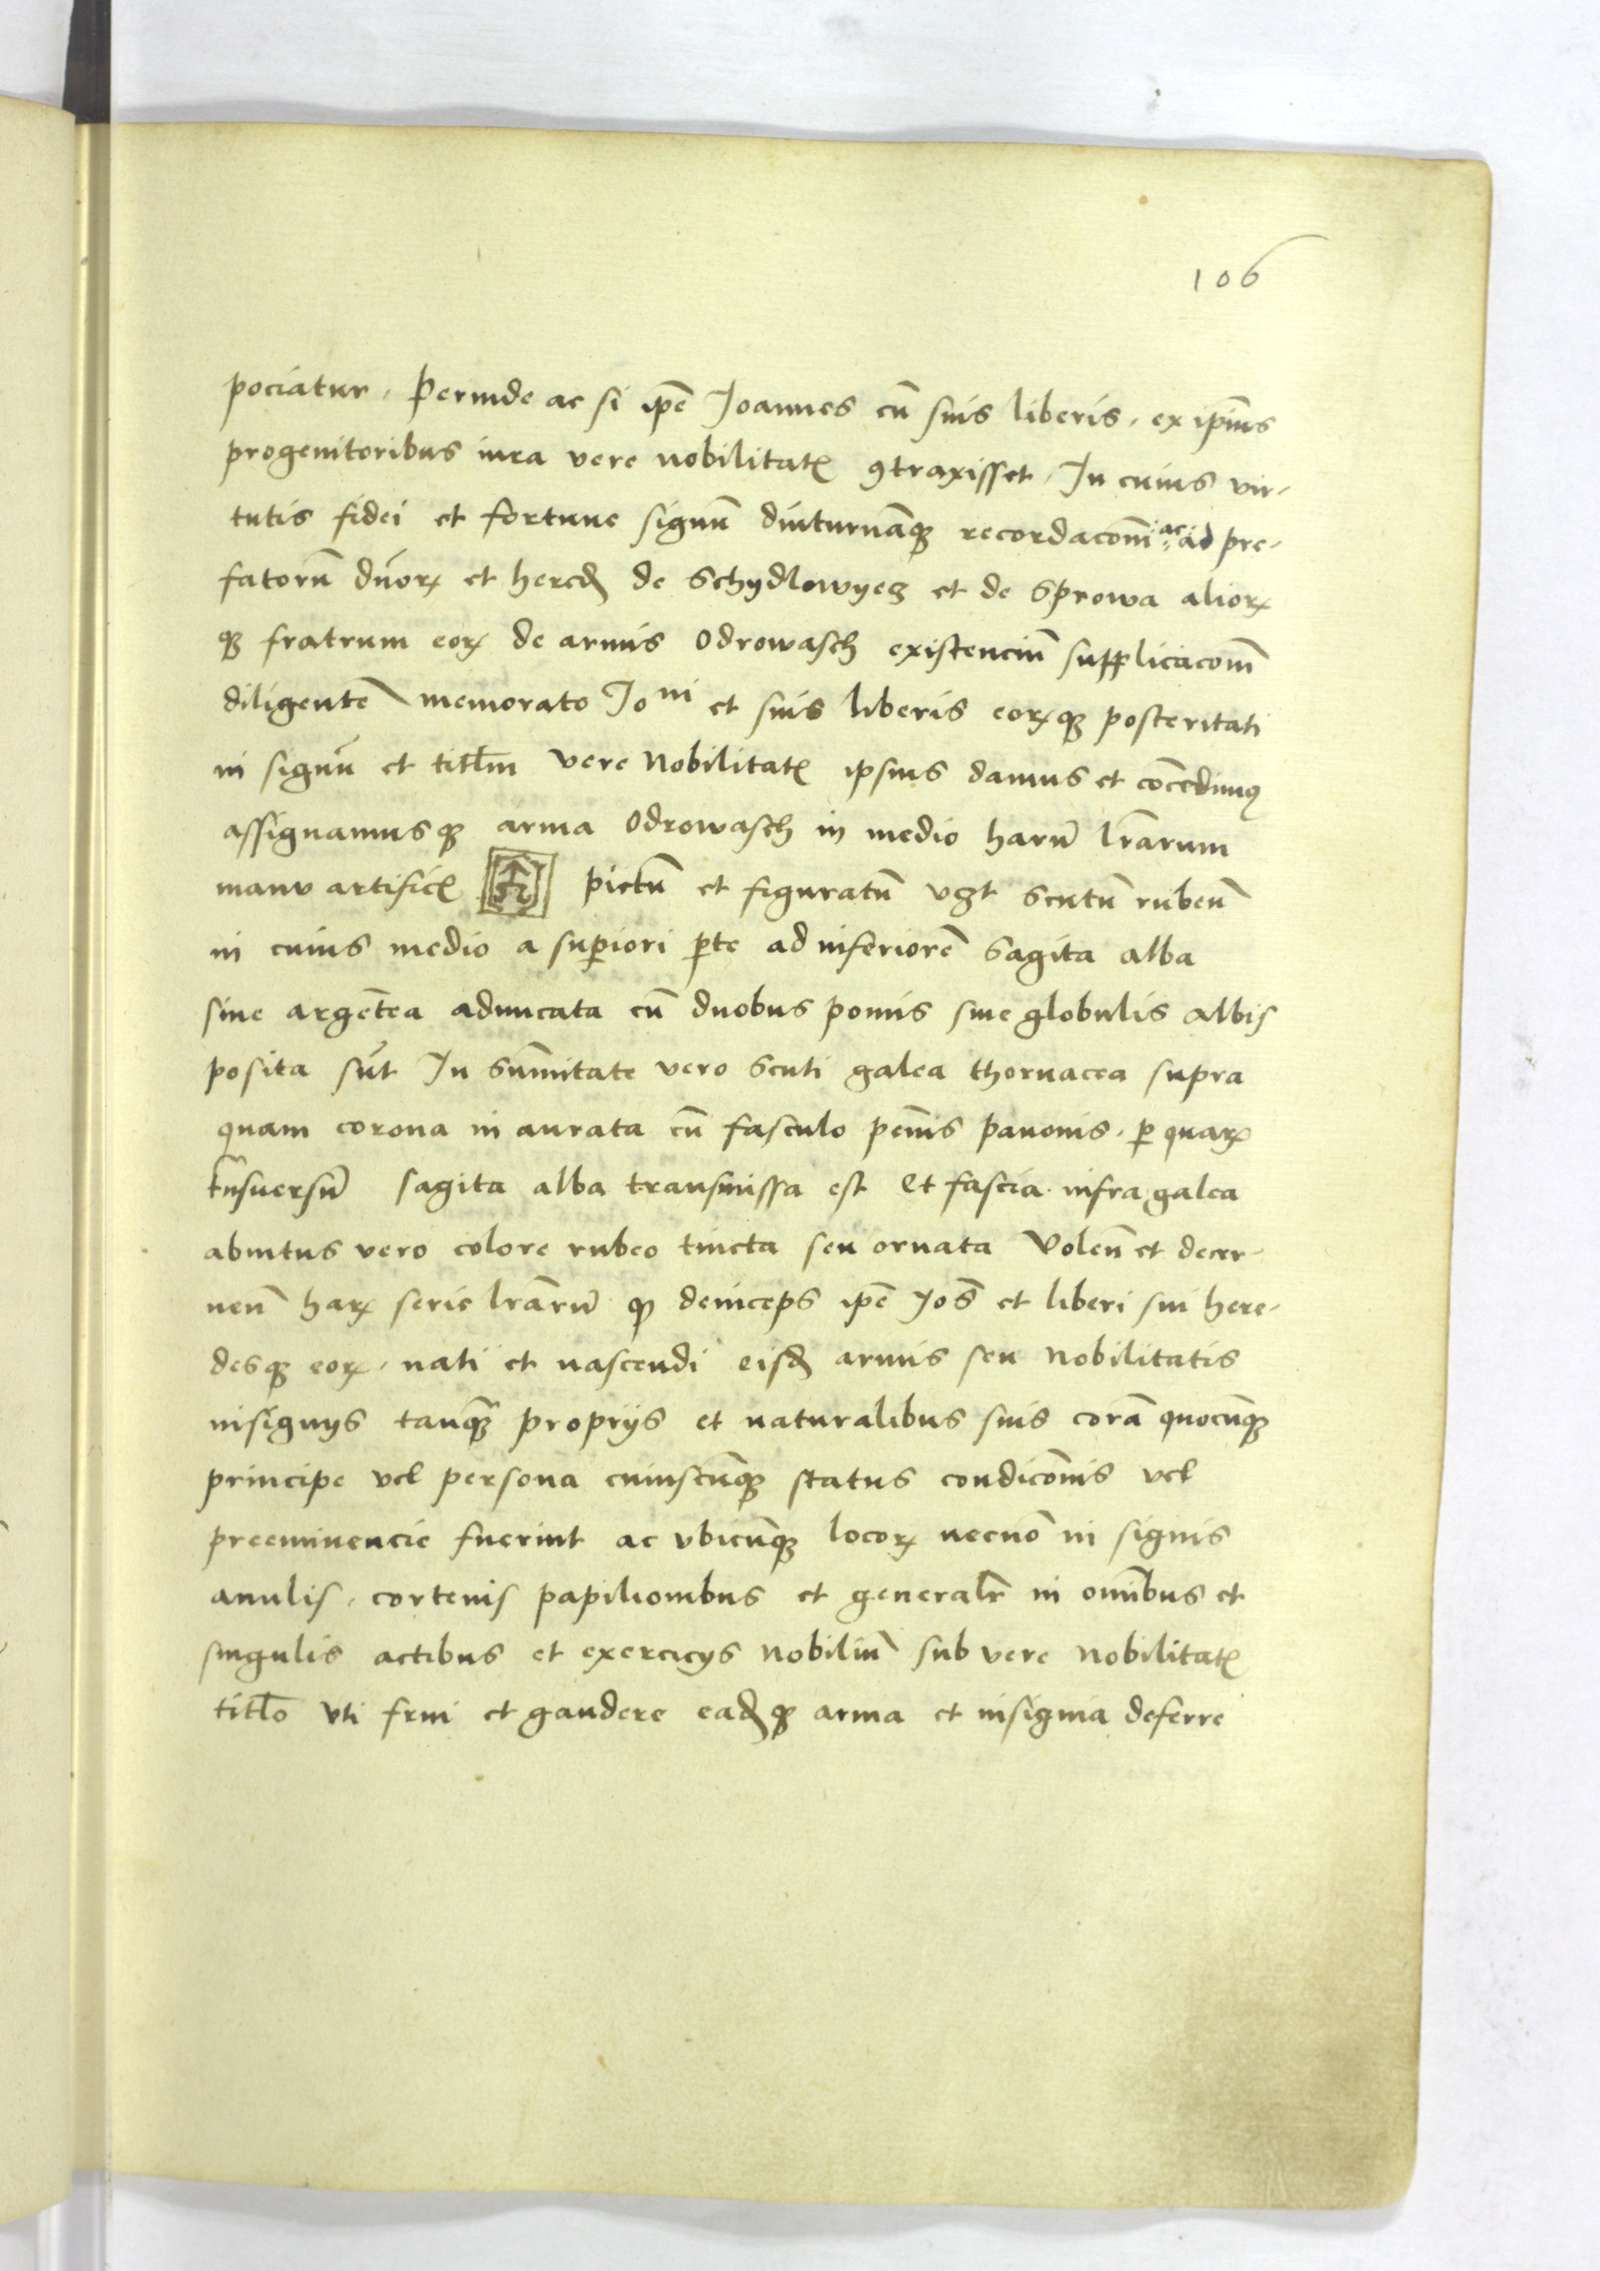 106
pociatur. Perinde ac si ip̄e Joannes cū suis liberis. ex ip̄ius
progenitoribus iura vere nobilitatꝭ ꝯtraxisset. In cuius vir-
tutis fidei et fortune signū diuturnāqꝫ recordacōni ac ad pre-
fatorū dn̄orꝝ et hered̄ de Schydlowyecz et de Sprowa aliorꝝ
qꝫ fratrum eorꝝ de armis Odrowasch existenciū supplicacōm̄
diligentē memorato Joni et suis liberis eorꝝqꝫ posteritati
in signū et titłm vere Nobilitatꝭ ipsius damus et cōcedimꝰ
assignamusqꝫ arma Odrowasch in medio harū lr̄arum
manu artificꝭ pictū et figuratū vꝫt Scutū rubeū
in cuius medio a supiori pte ad inferiorē Sagita alba
siue argētea aduncata cū duobus pomis siue globulis albis
posita sūt In Sūmitate vero Scuti galea thornacea supra
quam corona in aurata cū fasculo pēnis pauonis. ꝑ quarꝝ
tn̄suersū sagita alba transmissa est Et fascia infra galea
abintus vero colore rubeo tincta seu ornata Volen̄ et decer-
nen̄ harꝝ serie lr̄arū qꝫ deinceps ip̄e Jos̄ et liberi sui here-
desqꝫ eorꝝ. nati et nascendi eisd̄ armis seu Nobilitatis
insignys tanqꝫ̄ proprys et naturalibus suis corā quocūqꝫ
principe vel persona cuiuscūqꝫ status condicōnis vel
preeminencie fuerint ac vbicūqꝫ locorꝝ necnō in signis
anulis. cortenis papilionibus et generalr̄ in om̄ibus et
singulis actibus et exercicys Nobiliū sub vere Nobilitatꝭ
titło vti frui et gaudere ead̄qꝫ arma et insignia deferre